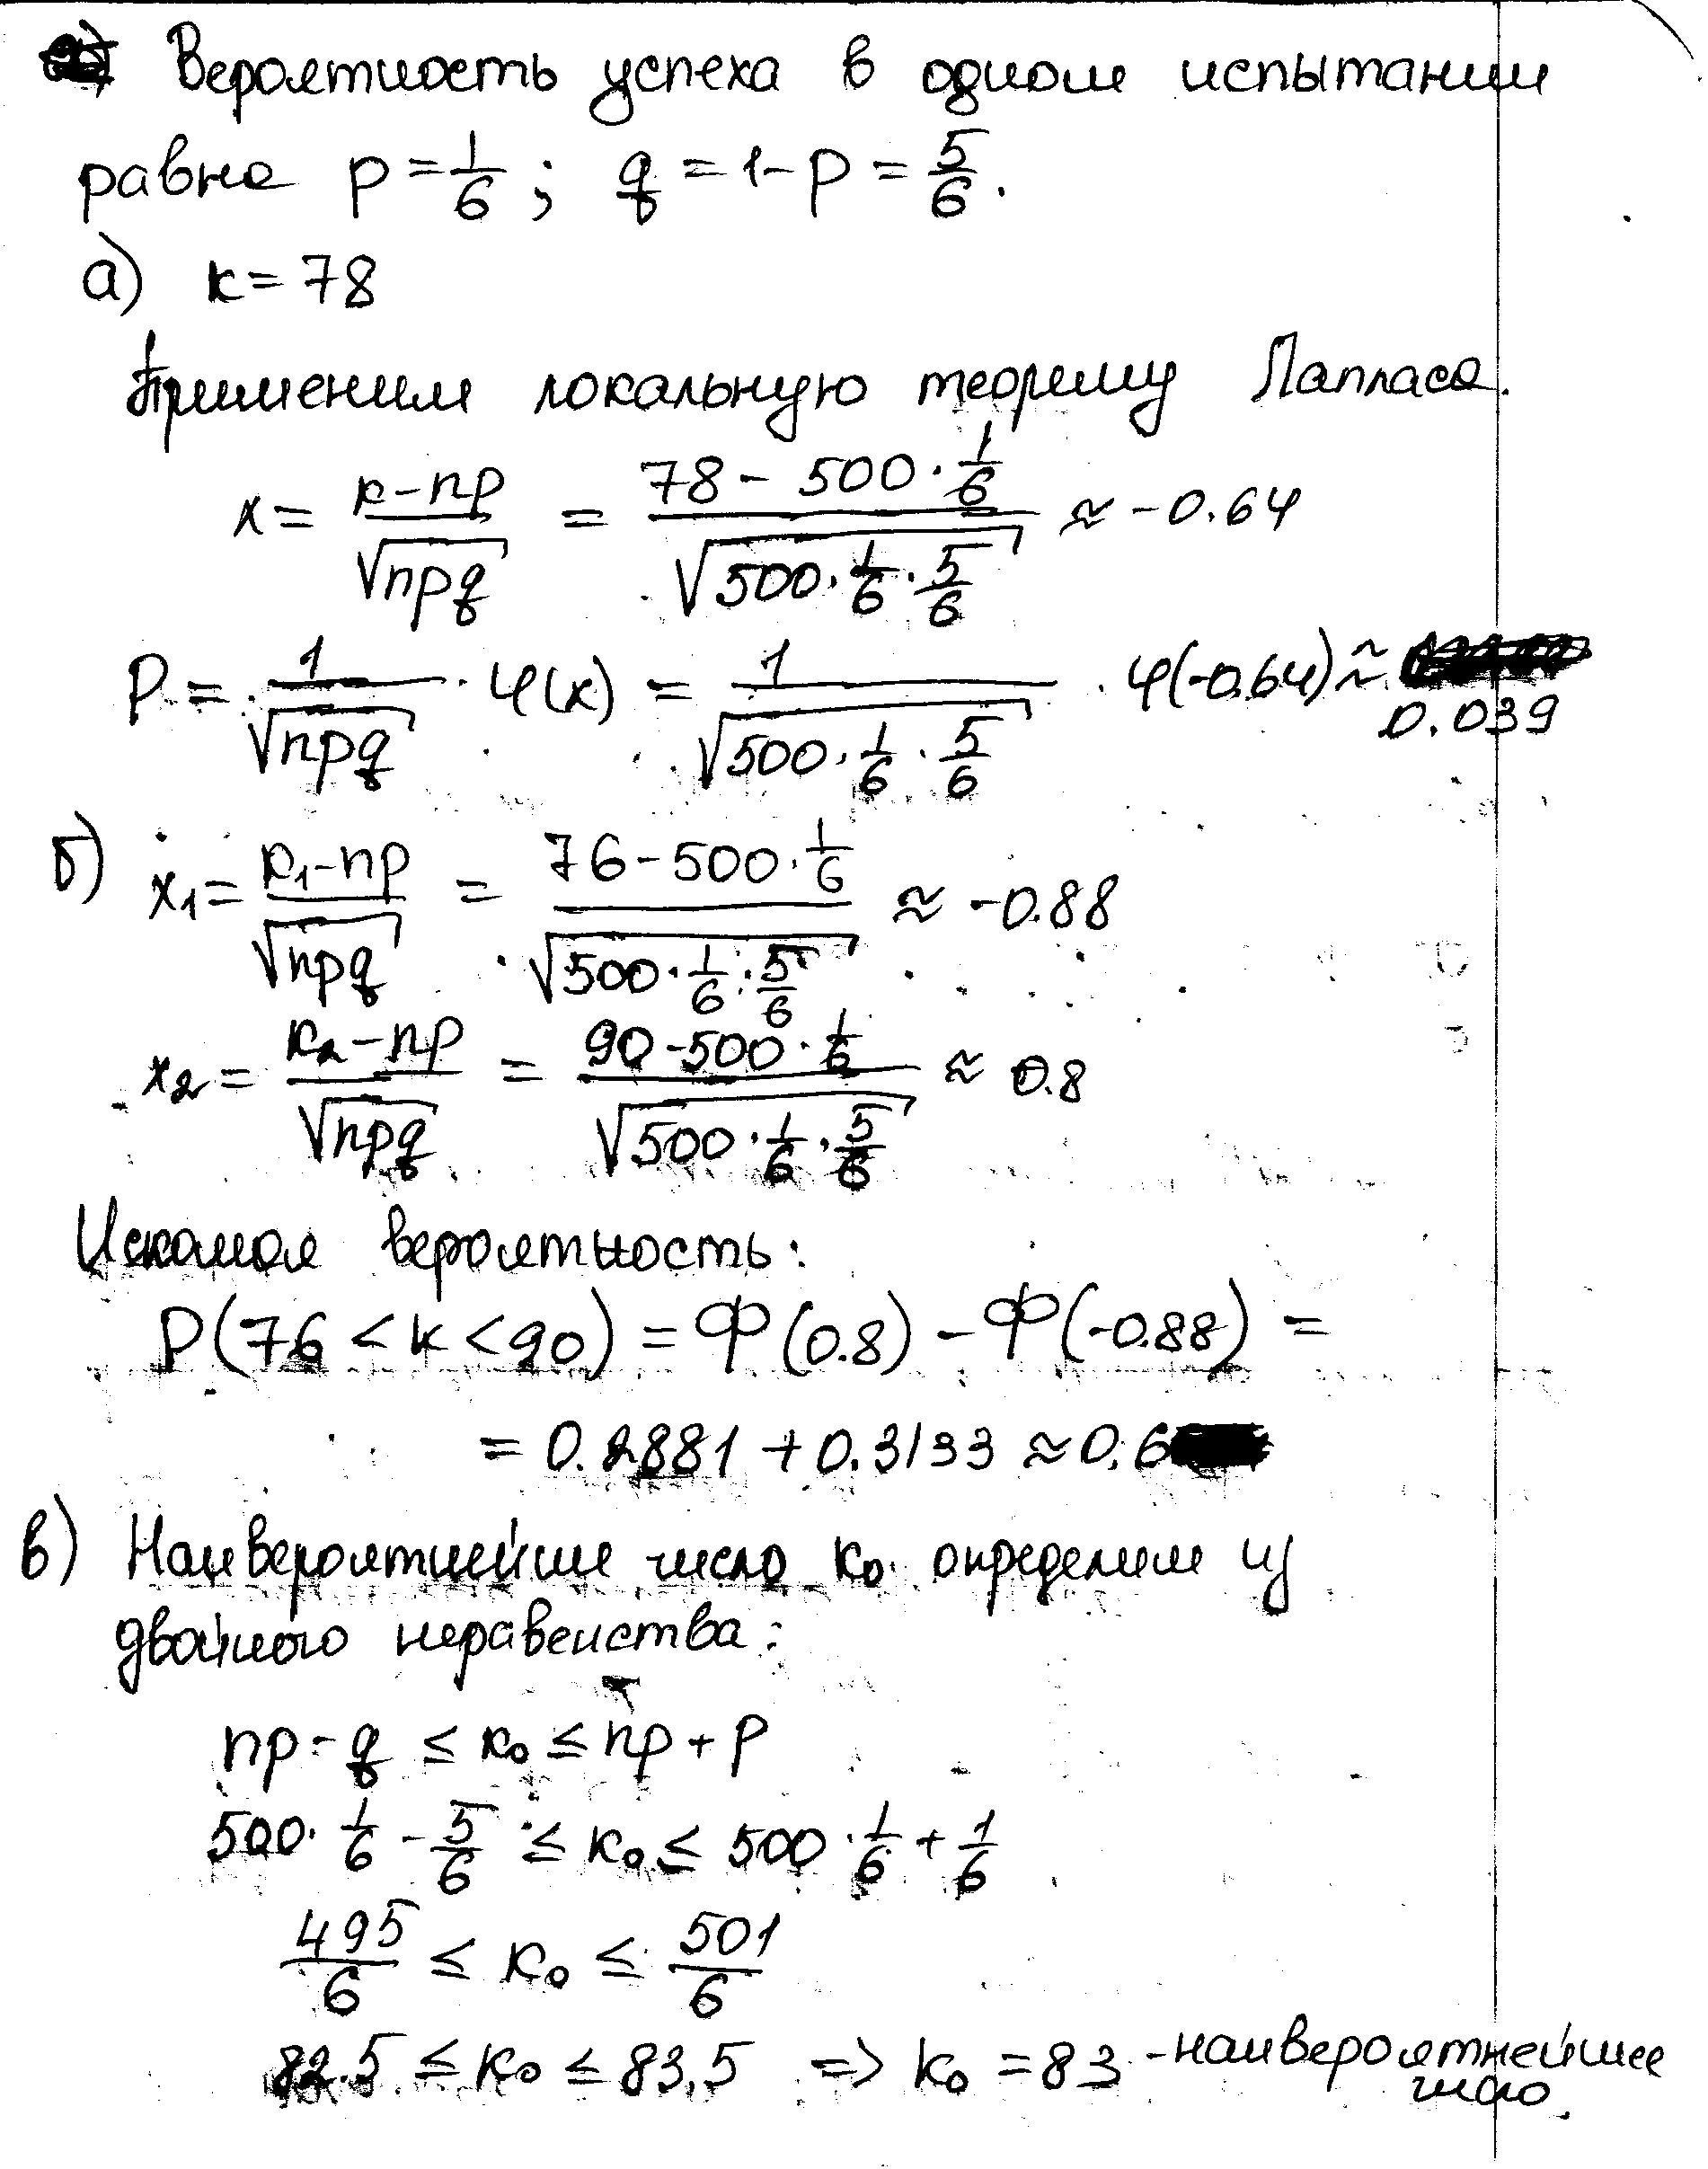 Вероятность успеха в одном испытании
равна p = 1/6 ; q = 1 - p = 5/6 .
а) k = 78
Применим локальную теорему Лапласа.
x = (k - np)/√(npq) = (78 - 500 · 1/6)/√(500 · 1/6 · 5/6) ≈ -0.64
P = 1/√(npq) · φ(x) = 1/√(500 · 1/6 · 5/6) · φ(-0.64) ≈
0.039
б) x₁ = (k₁ - np)/√(npq) = (76 - 500 · 1/6)/√(500 · 1/6 · 5/6) ≈ -0.88
x₂ = (k₂ - np)/√(npq) = (90 - 500 · 1/6)/√(500 · 1/6 · 5/6) ≈ 0.8
Искомая вероятность:
P(76 < k < 90) = Ф(0.8) - Ф(-0.88) =
= 0.2881 + 0.3133 ≈ 0.6
в) Наивероятнейше число k₀ определим из
двойного неравенства:
np - q ≤ k₀ ≤ np + p
500 · 1/6 - 5/6 ≤ k₀ ≤ 500 · 1/6 + 1/6
495/6 ≤ k₀ ≤ 501/6
82.5 ≤ k₀ ≤ 83,5 => k₀ = 83 - наивероятнейшее
число.